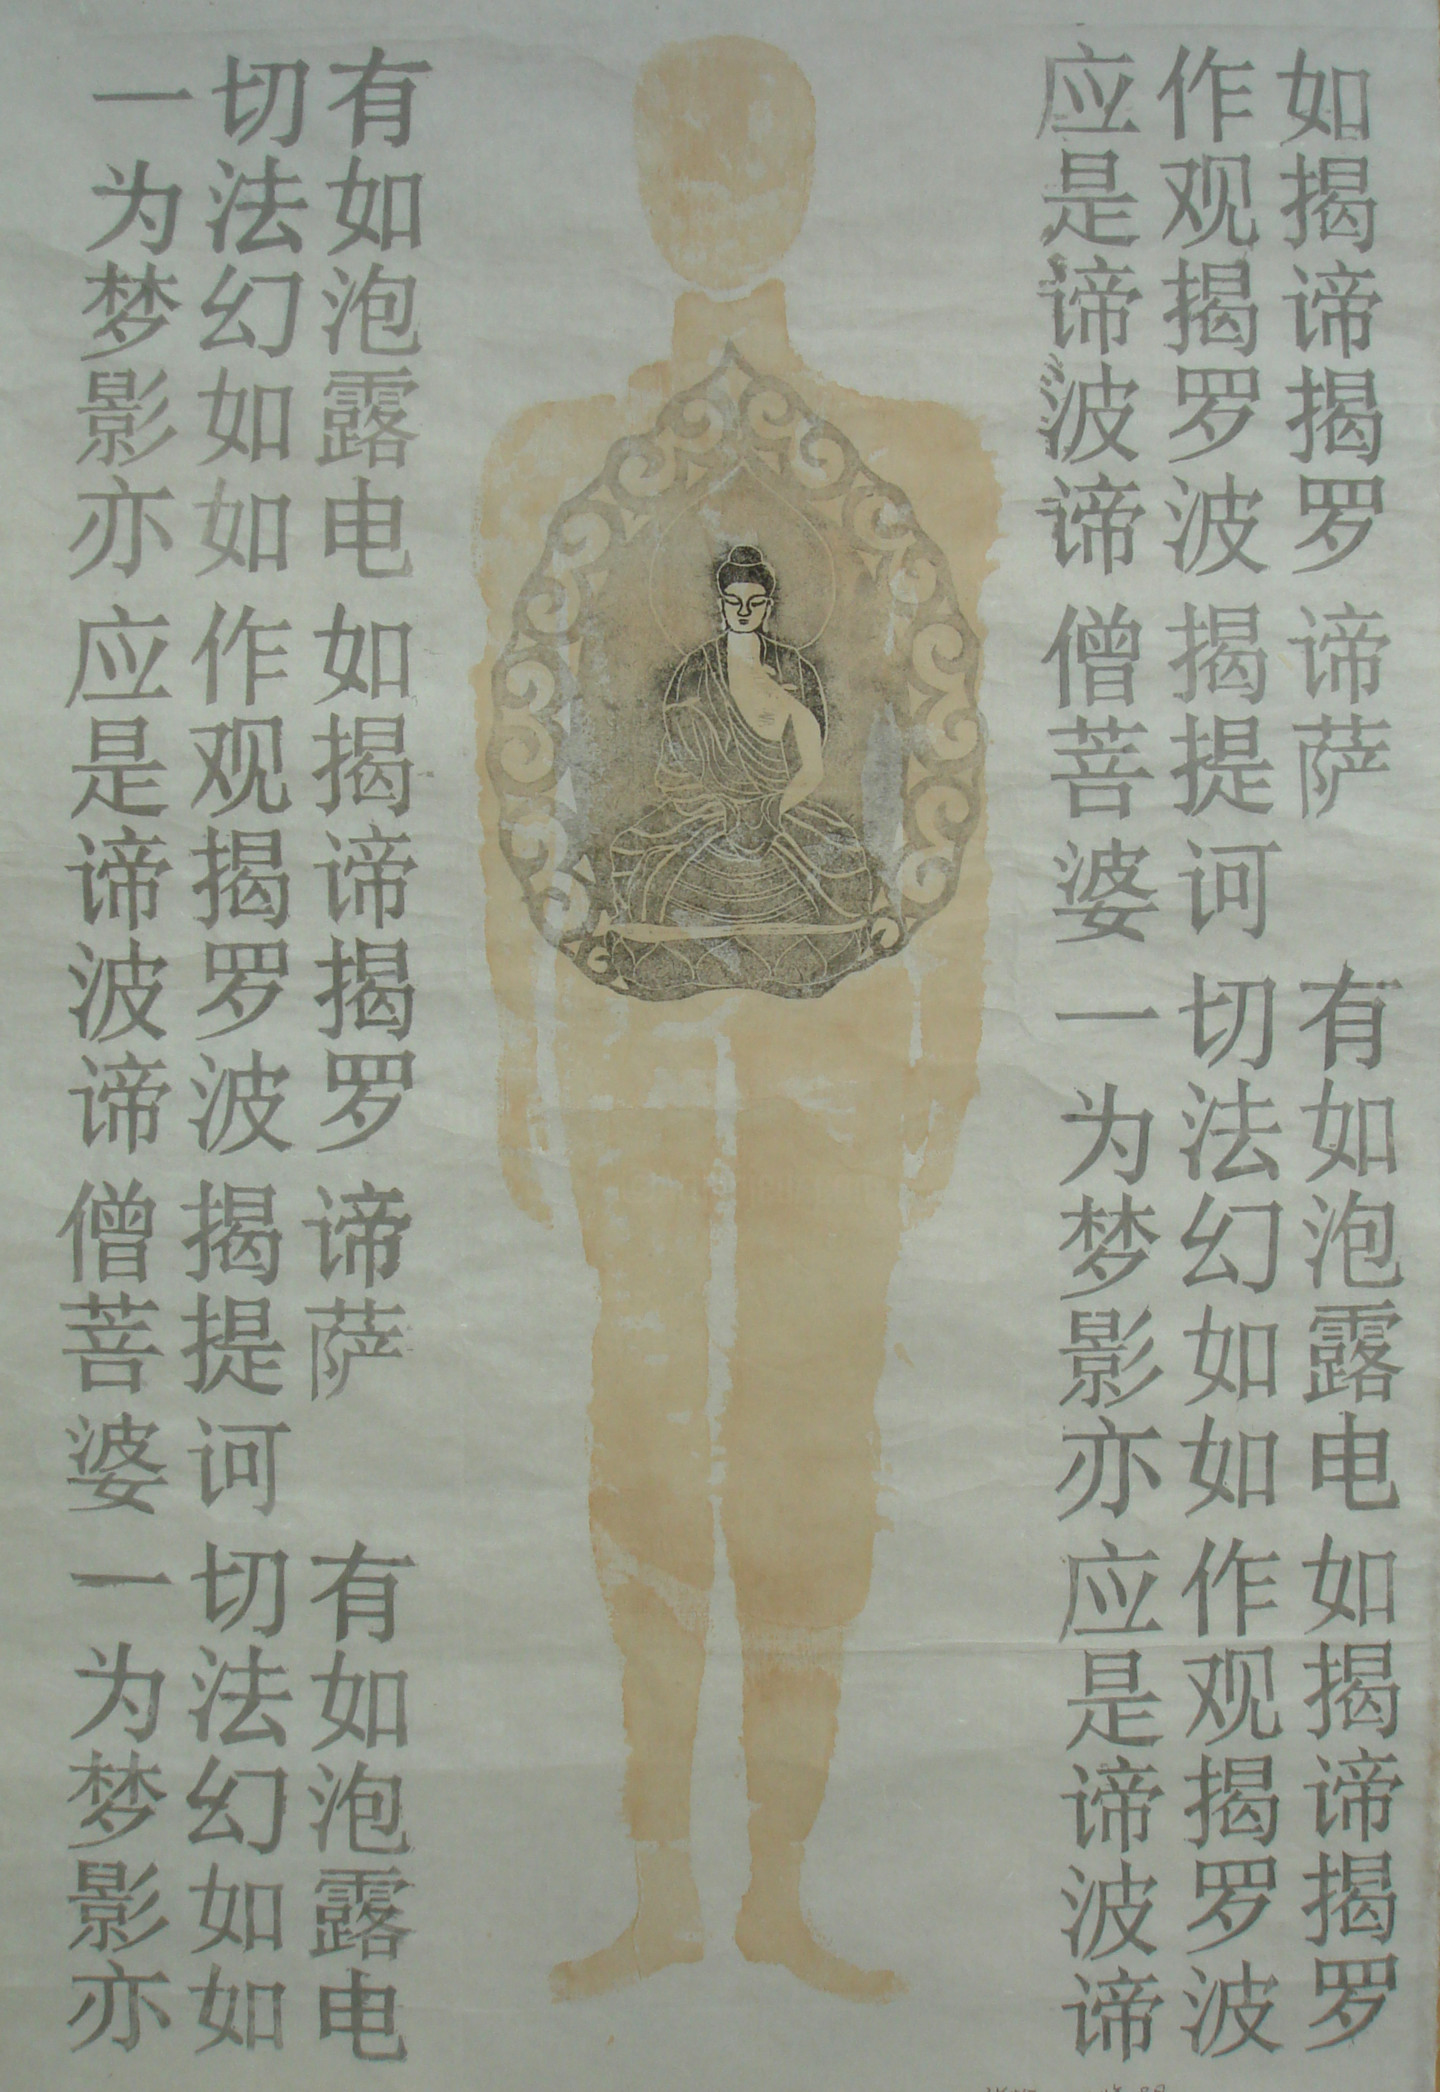 一切有
为法如
梦幻泡
影如露
亦如电
应作如
是观揭
谛揭谛
波罗揭
谛波罗
僧揭谛
菩提萨
婆诃
一切有
为法如
梦幻泡
影如露
亦如电
应作如
是观揭
谛揭谛
波罗揭
谛波罗
僧揭谛
菩提萨
婆诃
一切有
为法如
梦幻泡
影如露
亦如电
应作如
是观揭
谛揭谛
波罗揭
谛波罗